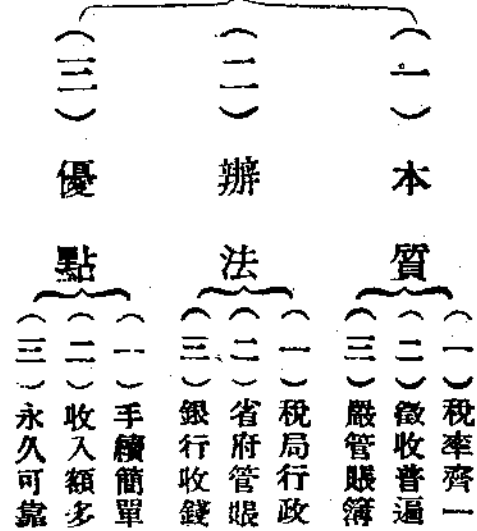 （一）本質
（一）稅率齊一
（二）徵收普遍
（三）嚴管賬簿
（二）辦法
（一）稅局行政
（二）省府管賬
（三）銀行收錢
（三）優點
（一）手續簡單
（二）收入額多
（三）永久可靠